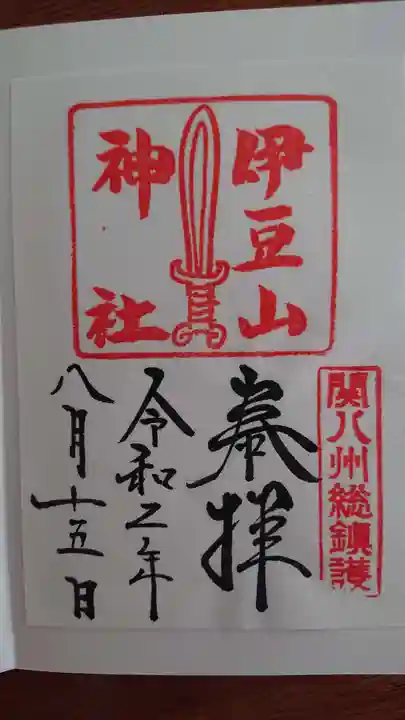 伊豆山
神社
関八州総鎮護
奉拝
令和二年
八月十五日